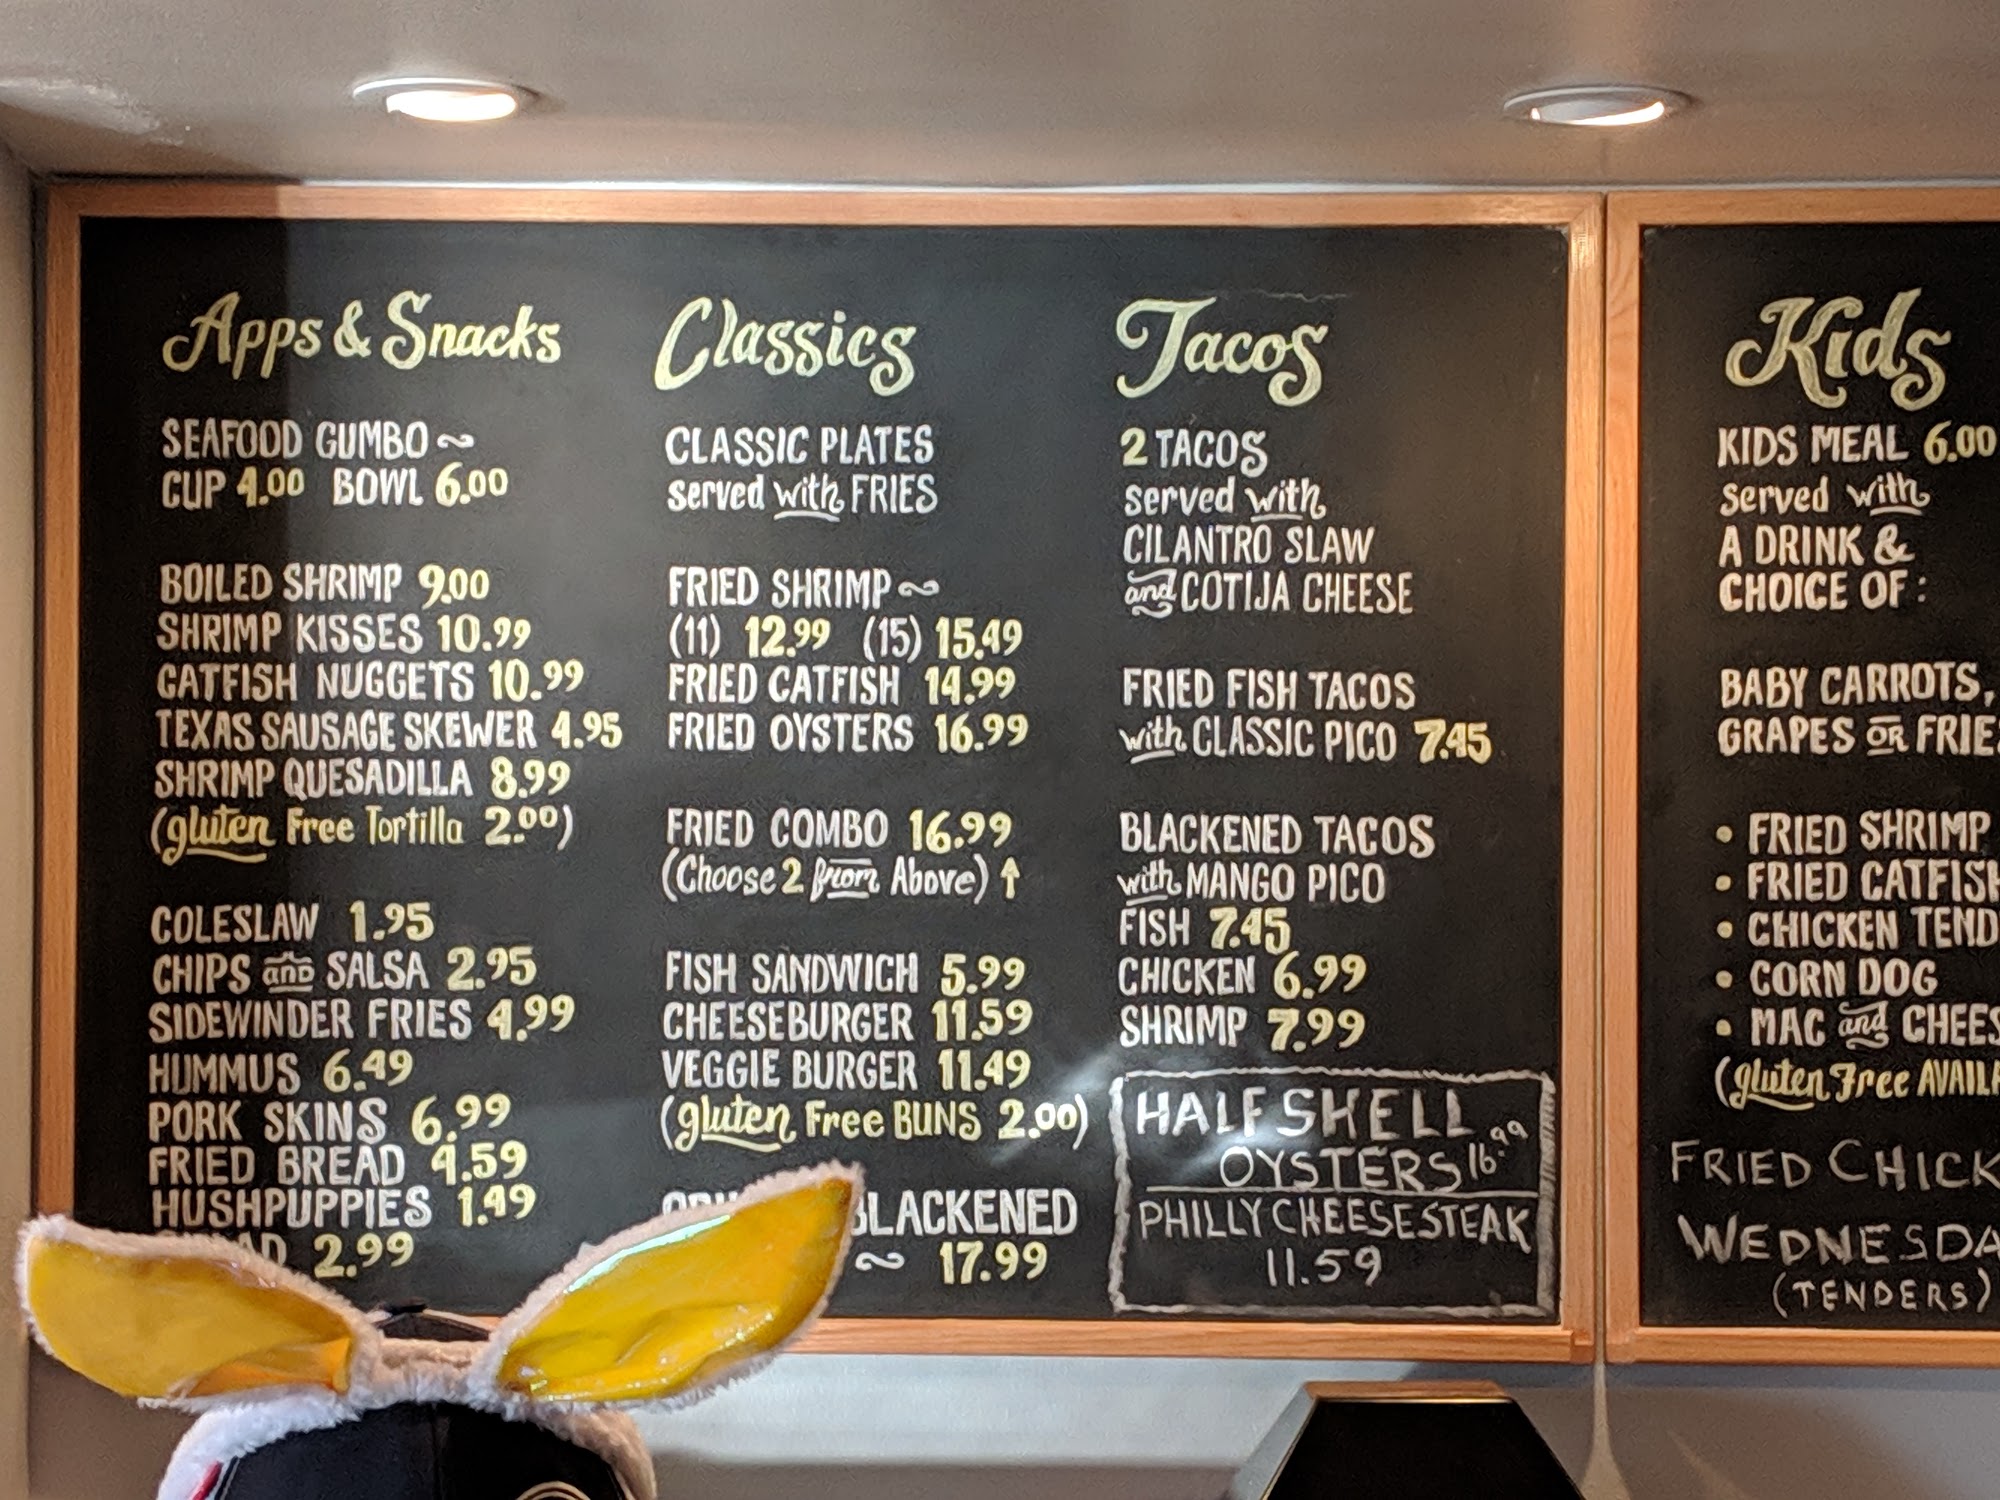 Apps & Snacks
SEAFOOD GUMBO ~
CUP 4.00 BOWL 6.00
BOILED SHRIMP 9.00
SHRIMP KISSES 10.99
CATFISH NUGGETS 10.99
TEXAS SAUSAGE SKEWER 4.95
SHRIMP QUESADILLA 8.99
(gluten Free Tortilla 2.00)
COLESLAW 1.95
CHIPS and SALSA 2.95
SIDEWINDER FRIES 4.99
HUMMUS 6.49
PORK SKINS 6.99
FRIED BREAD 4.59
HUSHPUPPIES 1.49
2.99
Classics
CLASSIC PLATES
served with FRIES
FRIED SHRIMP ~
(11) 12.99 (15) 15.49
FRIED CATFISH 14.99
FRIED OYSTERS 16.99
FRIED COMBO 16.99
(Choose 2 from Above) ↑
FISH SANDWICH 5.99
CHEESEBURGER 11.59
VEGGIE BURGER 11.49
(gluten Free BUNS 2.00)
BLACKENED
~ 17.99
Tacos
2 TACOS
served with
CILANTRO SLAW
and COTIJA CHEESE
FRIED FISH TACOS
with CLASSIC PICO 7.45
BLACKENED TACOS
with MANGO PICO
FISH 7.45
CHICKEN 6.99
SHRIMP 7.99
HALF SHELL
OYSTERS 16.99
PHILLY CHEESESTEAK
11.59
Kids
KIDS MEAL 6.00
served with
A DRINK &
CHOICE OF:
BABY CARROTS,
GRAPES OR FRIES
• FRIED SHRIMP
• FRIED CATFISH
• CHICKEN TEND
• CORN DOG
• MAC and CHEES
(gluten Free AVAIL
FRIED CHICK
WEDNESDA
(TENDERS)